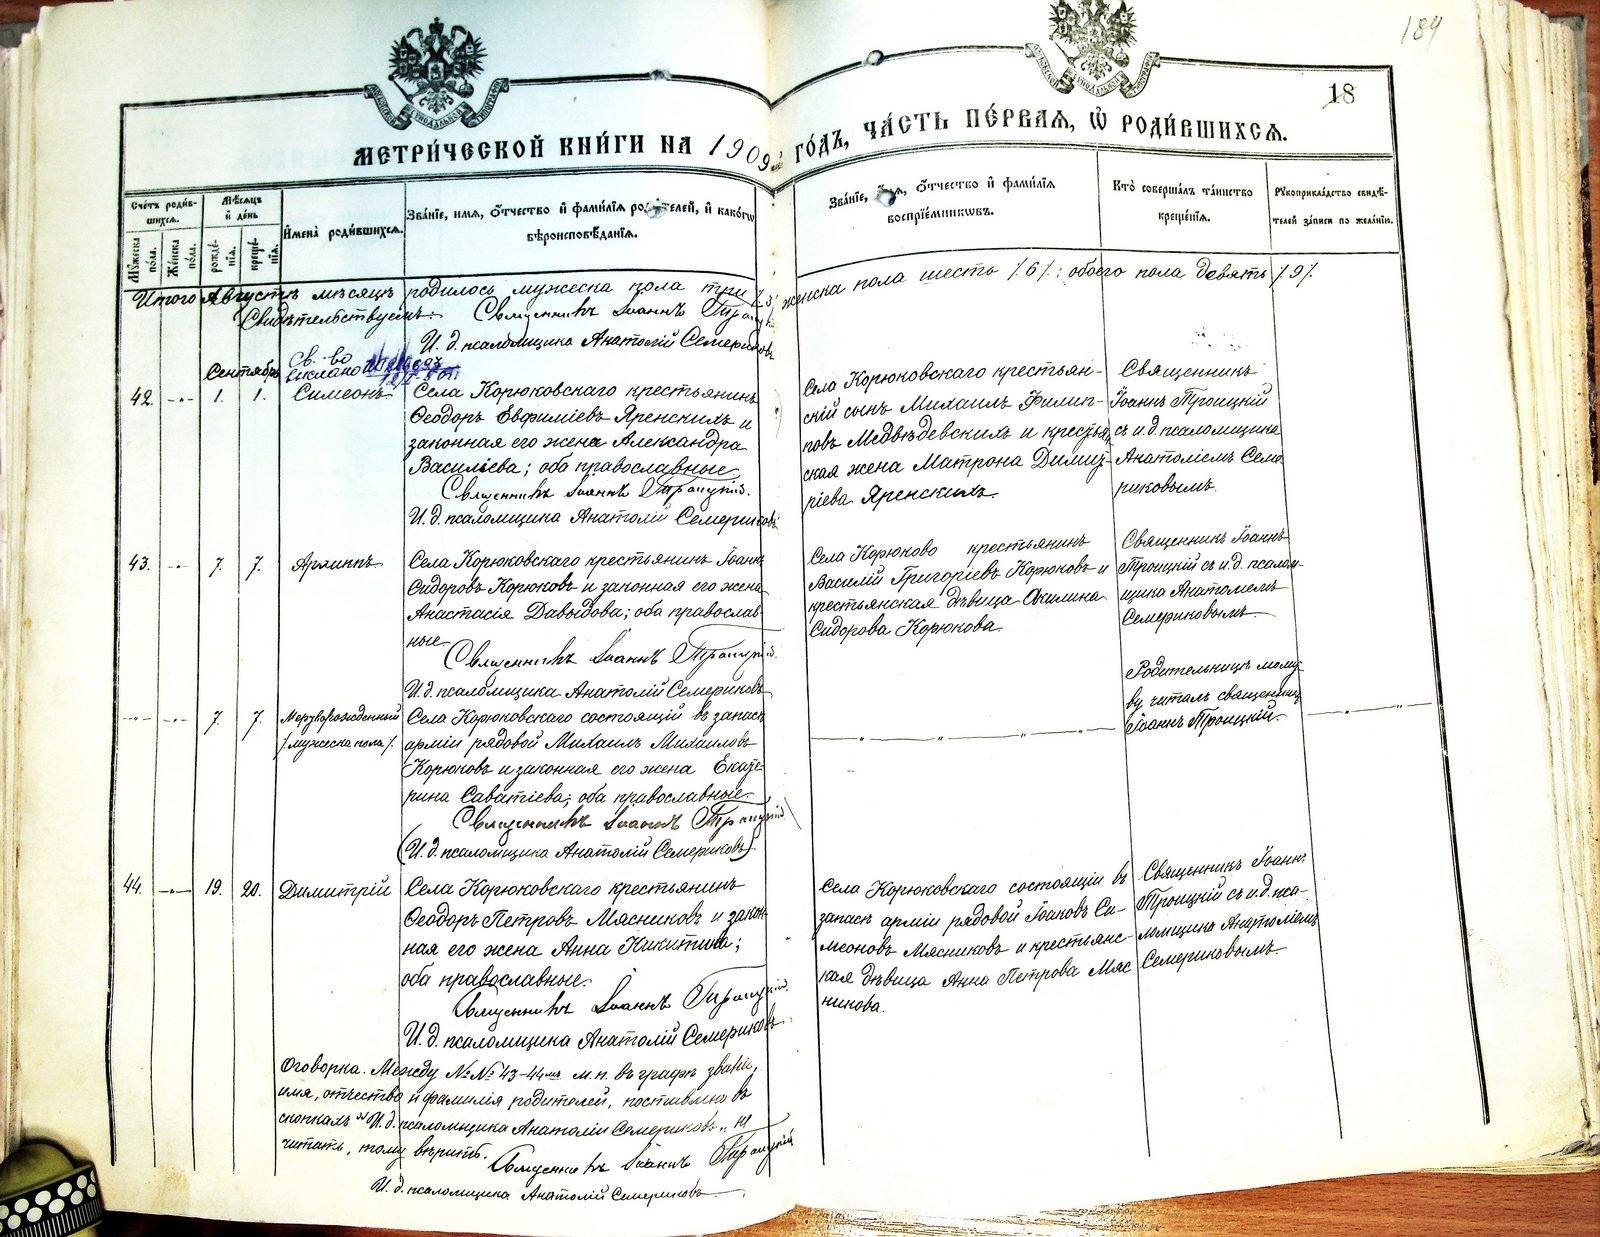 184
18
МЕТРИ́ЧЕСКОЙ КНИ́ГИ НА 1909й ГО́ДЪ, ЧА́СТЬ ПЕ́РВАЯ, Ѿ РОДИ́ВШИХСЯ.
Сче́тъ роди́вшихся.
Му́жеска по́ла.
Же́нска по́ла.
Мѣ́сяцъ и де́нь
рожде́нія.
креще́нія.
Имена̀ роди́вшихся.
Зва́ніе, имя, о́тчество и фами́лія родителей, и како́гѡ вѣроисповѣ́данія.
Зва́ніе, имя, о́тчество и фами́лія воспріе́мниковъ.
Кто̀ соверша́лъ та́инство креще́нія.
Рукоприкла́дство свидѣ́телей за́писи по жела́нію.
Итого Августѣ мѣсяцѣ родилось мужеска пола три /3/ женска пола шесть /6/; обоего пола девять /9/.
Свидѣтельствуемъ: Священникъ Іоаннъ Троицкій
И. д. псаломщика Анатолій Семериковъ
Сентябрь
Св. во
выслано
42. -„- 1. 1. Симеонъ
Села Корюковскаго крестьянинъ
Ѳеодоръ Евфиміевъ Яренскихъ и
законная его жена Александра
Василіева; оба православные.
Священникъ Іоаннъ Троицкій.
И. д. псаломщика Анатолій Семериковъ
Села Корюковскаго крестьян-
скій сынъ Михаилъ Филип-
повъ Медвѣдевскихъ и крестьян-
ская жена Матрона Димит-
ріева Яренскихъ.
Священникъ
Іоаннъ Троицкій
съ и. д. псаломщика
Анатоліемъ Семе-
риковымъ.
43. -„- 7. 7. Архиппъ
Села Корюковскаго крестьянинъ Іоаннъ
Сидоровъ Корюковъ и законная его жена
Анастасія Давыдова; оба православ-
ные.
Священникъ Іоаннъ Троицкій.
И. д. псаломщика Анатолій Семериковъ
Села Корюково крестьянинъ
Василій Григоріевъ Корюковъ и
крестьянская дѣвица Акилина
Сидорова Корюкова.
Священникъ Іоаннъ
Троицкій съ и. д. псалом-
щика Анатолемъ
Семериковымъ
-„- -„- 7. 7. Мертворожденный
/мужеска пола/.
Села Корюковскаго состоящій въ запасѣ
арміи рядовой Михаилъ Михаиловъ
Корюковъ и законная его жена Екате-
рина Саватіева; оба православные.
Священникъ Іоаннъ Троицкій
(И. д. псаломщика Анатолій Семериковъ)
Родительницѣ молит-
ву читалъ священникъ
Іоаннъ Троицкій.
44. -„- 19. 20. Димитрій
Села Корюковскаго крестьянинъ
Ѳеодоръ Петровъ Мясниковъ и закон-
ная его жена Анна Никитина;
оба православные.
Священникъ Іоаннъ Троицкій.
И. д. псаломщика Анатолій Семериковъ
Села Корюковскаго состоящій въ
запасѣ арміи рядовой Іоаковъ Си-
меоновъ Мясниковъ и крестьянс-
кая дѣвица Анна Петрова Мяс
никова.
Священникъ Іоаннъ
Троицкій съ и. д. пса-
ломщика Анатоліемъ
Семериковымъ.
Оговорка. Между №№ 43-44мъ м. п. въ графѣ званіе,
имя, отчество и фамилія родителей, поставлено въ
скобкахъ „И. д. псаломщика Анатолій Семериковъ„ не
читать, тому вѣрить. Священникъ Іоаннъ Троицкій
И. д. псаломщика Анатолій Семериковъ